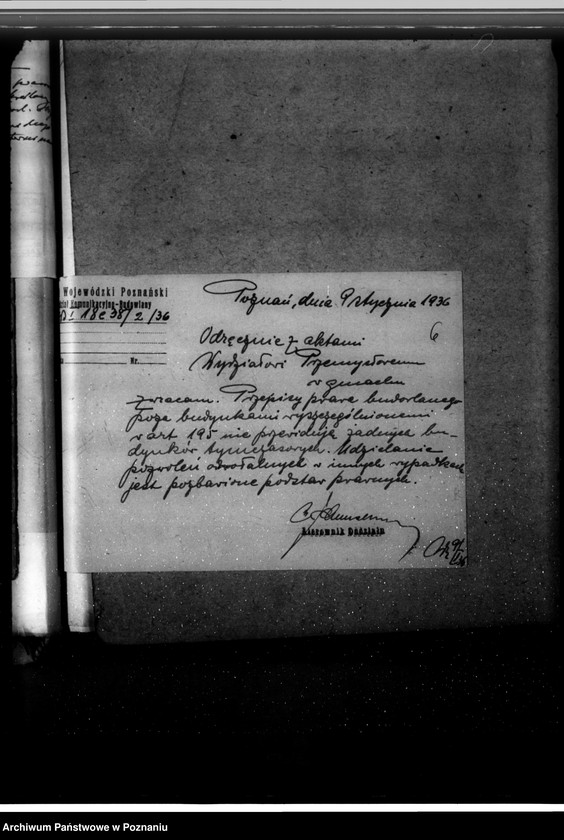 Wojewódzki Poznański
Komunikacyjno-Budowlany
18c38/2/36
Nr.
Poznań, dnia 9 stycznia 1936
6
Odręcznie z aktami
Wydziałowi Przemysłowemu
w gmachu
zwracam. Przepisy prawa budowlanego
poza budynkami wyszczególnionemi
w art 195 nie przewidują żadnych bu-
dynków tymczasowych. Udzielanie
pozwoleń odwołalnych w innych wypadkach
jest pozbawione podstaw prawnych.
Kierownik Oddziału
Archiwum Państwowe w Poznaniu